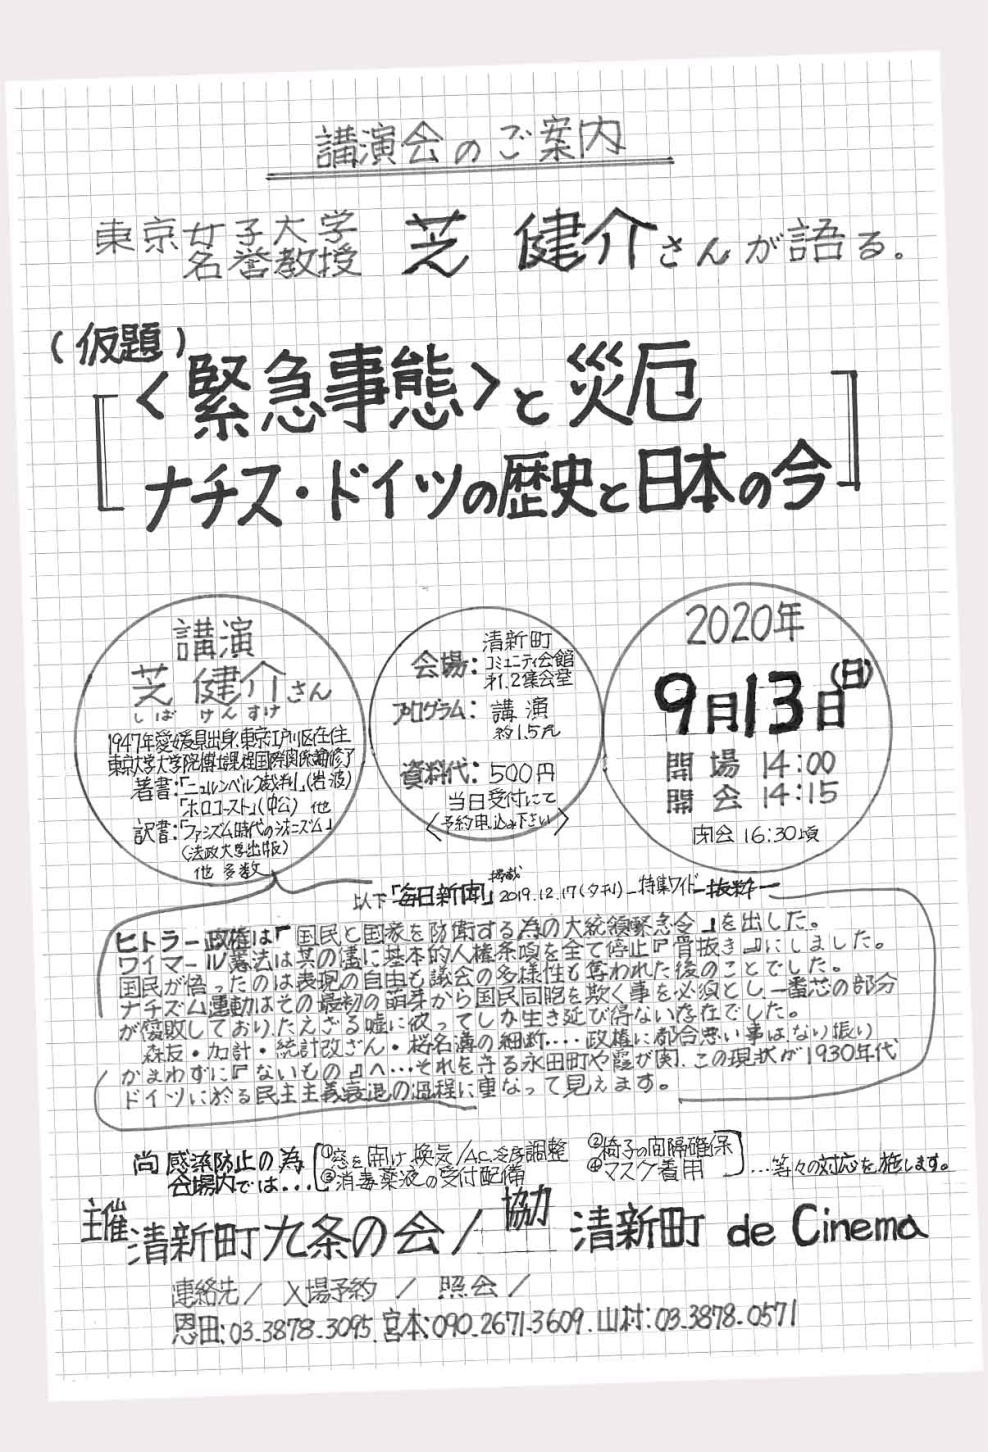 講演会のご案内
東京女子大学
名誉教授 芝 健介さんが語る。
(仮題)
〈緊急事態〉と災厄
ナチス・ドイツの歴史と日本の今
講演
芝 健介さん
しば けんすけ
1947年愛媛県出身.東京江戸川区在住
東京大学大学院博士課程国際関係論修了
著書:「ニュルンベルク裁判」(岩波)
「ホロコースト」(中公) 他
訳書:「ファシズム時代のシオニズム」
(法政大学出版)
他 多数
会場:清新町
コミュニティ会館
才1.2集会室
プログラム:講演
約1.5h
資料代:500円
当日受付にて
〈予約申込み下さい〉
2020年
9月13日(日)
開場 14:00
開会 14:15
閉会 16:30頃
以下「毎日新聞」掲載 2019.12.17(夕刊)-特集ワイド-抜粋-
ヒトラー政権は『国民と国家を防衛する為の大統領緊急令』を出した。
ワイマール憲法は其の儘に基本的人権条項を全て停止『骨抜き』にしました。
国民が悟ったのは表現の自由も議会の多様性も奪われた後のことでした。
ナチズム運動はその最初の萌芽から国民同胞を欺く事を必須とし、一番芯の部分
が腐敗しており、たえざる嘘に依ってしか生き延び得ない存在でした。
森友・加計・統計改ざん・桜名簿の細断‥‥政権に都合悪い事は、なり振り
かまわずに『ないもの』へ…それを守る永田町や霞が関、この現状が1930年代
ドイツに於る民主主義衰退の過程に重なって見えます。
尚 感染防止の為
会場内では…
①窓を開け換気/A.C冷房調整 ②椅子の間隔確保
③消毒薬液の受付配備 ④マスク着用
…等々の対応を施します。
主催 清新町九条の会 / 協力 清新町 de Cinema
連絡先 / 入場予約 / 照会 /
恩田:03-3878-3095.宮本:090-2671-3609.山村:03-3878-0571